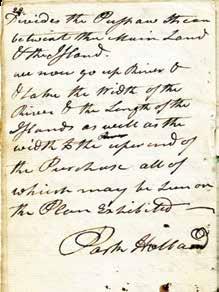 24
Divides the
betwixt the Main Land
& the Island.
we now go up River &
& take the Width of the
River & the Length of the
Islands as well as the
width to the uper end of
the Purchase all of
which may be seen on
the Plan Exhibited —
Park Holland